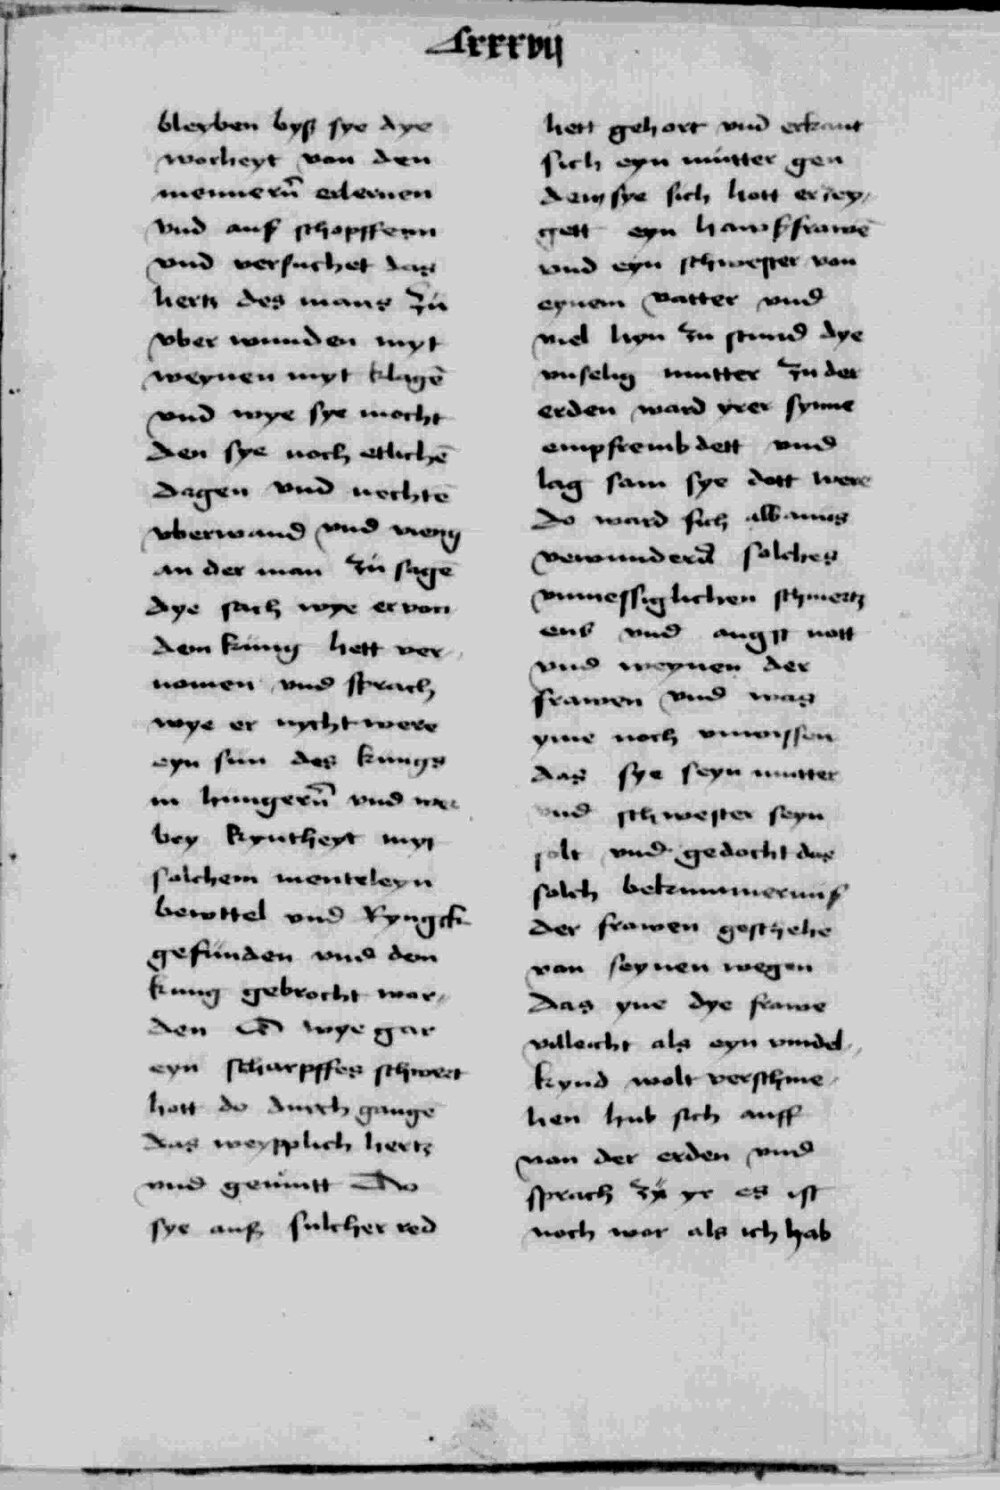 Lxxxvij
bleyben byß sye dye
worheyt von den
mennern̄ erlernen
vnd auß schopffenn
vnd versuchet das
hertz des mans zu
vber wunden myt
weynen myt klagē
vnd wye sye mocht
den sye noch etlichē
dagen vnd nechtē
vberwand vnd vieng
an der man zü sagē
dye sach wye er von
dem küng hett ver
nomen vnd sprach
wye er nycht were
eyn sun des kungs
in hungern̄ vnd wer
bey kyntheyt myt
solchem menteleyn
bewttel vnd Ryngck
gefünden vnd dem
kung gebrocht wor
den O wye gar
eyn scharpffes schwert
hott do durch gangē
das weypplich hertz
vnd gemutt Do
sye auß sulcher red
hett gehort vnd erkant
sich eyn mütter gen
dem sye sich hott erzey
gett eyn hawßfrawē
vnd eyn schwester von
eynem vatter vnd
viel hyn zu stund dye
vnselig mutter zu der
erden ward yrer synne
empfrembdett vnd
lag sam sye dott were
do ward sich albanus
verwundern̄ solches
vnmessiglichen schmertz
ens vnd angst nott
vnd weynen der
frawen vnd was
yme noch vnwissen
das sye seyn mutter
vnd schwester seyn
solt vnd gedocht das
solch bekummernuß
der frawen geschehe
von seynen wegen
das yne dye frawe
villeicht als eyn vindel
kynd wolt verschme
hen hub sich auff
von der erden vnd
sprach zü yr es ist
noch wor als ich hab